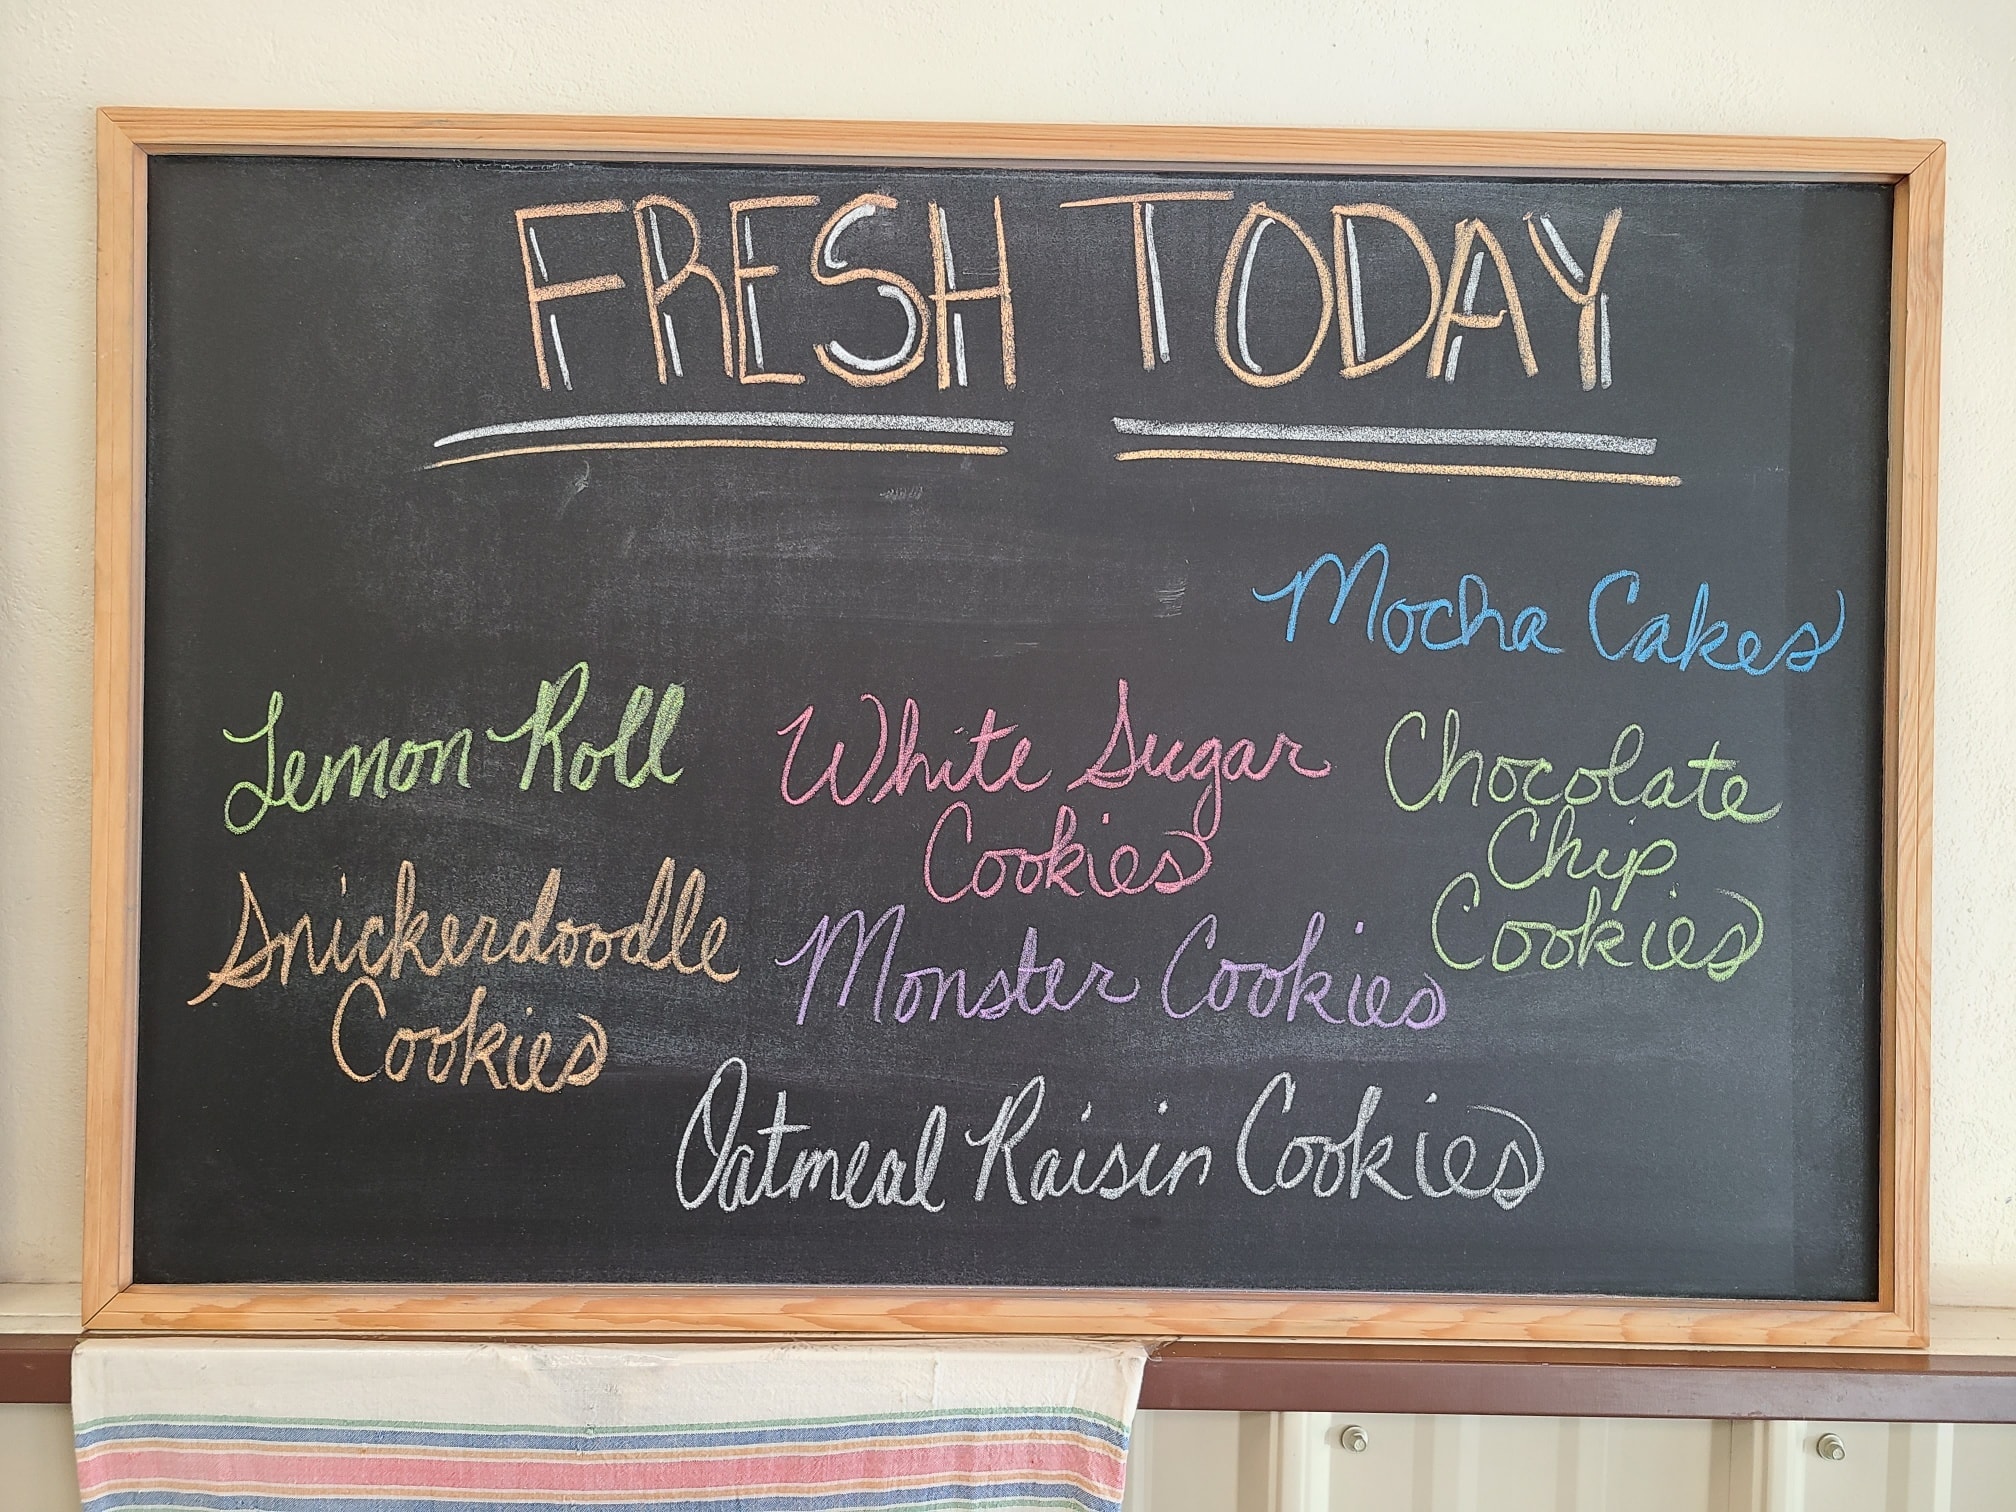 FRESH TODAY
Mocha Cakes
Lemon Roll
White Sugar
Cookies
Chocolate
Chip
Cookies
Snickerdoodle
Cookies
Monster Cookies
Oatmeal Raisin Cookies